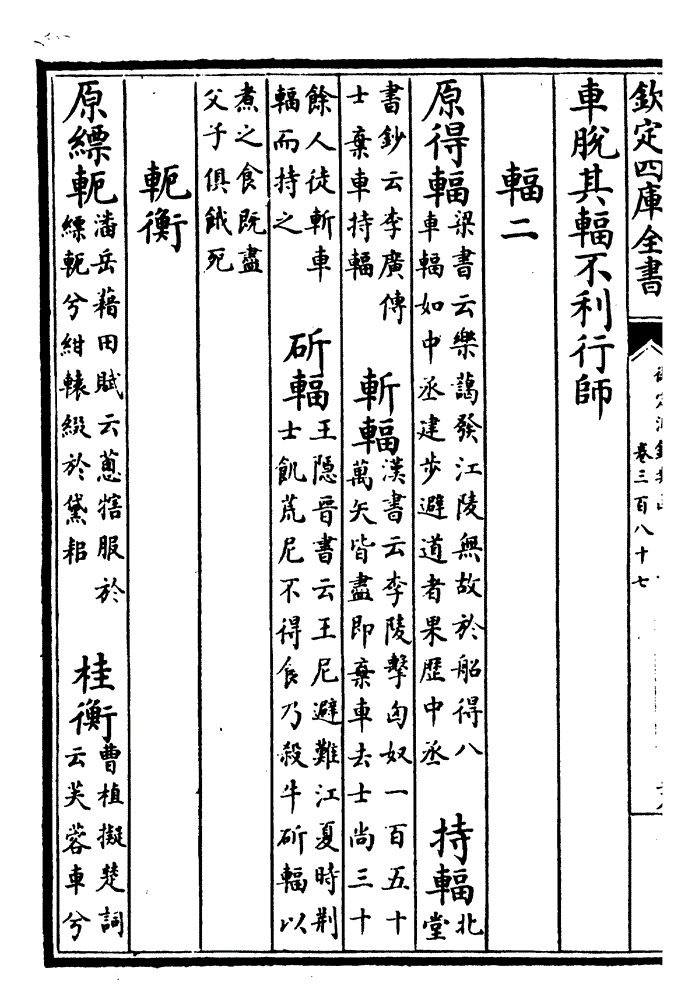 欽定四庫全書
卷三百八十七
車脫其輻不利行師
輻二
原得輻
梁書云樂藹發江陵無故於船得八
車輻如中丞建步避道者果歷中丞
持輻
北
堂
書鈔云李廣傳
士棄車持輻
斬輻
漢書云李陵擊匈奴一百五十
萬矢皆盡即棄車去士尚三十
餘人徒斬車
輻而持之
斫輻
王隠晉書云王尼避難江夏時荆
士飢荒尼不得食乃殺牛斫輻以
煮之食既盡
父子俱餓死
軛衡
原縹軛
潘岳藉田賦云蔥犗服於
縹軛兮紺轅綴於黛耜
桂衡
曹植擬楚詞
云芙蓉車兮